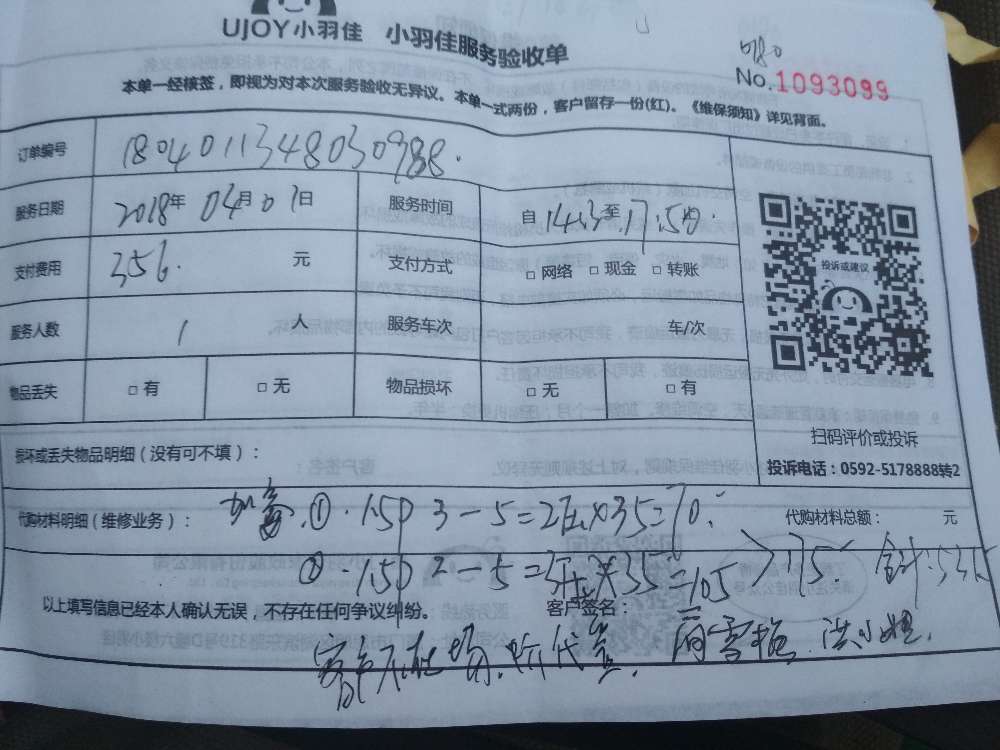 UJOY小羽佳 小羽佳服务验收单
No.1093099
本单一经核签，即视为对本次服务验收无异议。本单一式两份，客户留存一份(红)。《维保须知》详见背面。
订单编号 1804011348030988.
服务日期 2018年04月01日 服务时间 自14.3至17.5
支付费用 356. 元 支付方式 □ 网络 □ 现金 □ 转账
服务人数 1 人 服务车次 车/次
物品丢失 □ 有 □ 无 物品损坏 □ 无 □ 有
扫码评价或投诉
投诉或建议
损坏或丢失物品明细（没有可不填）：
投诉电话：0592-5178888转2
代购材料明细（维修业务）： ① 1.5P 3-5=2 X35=70.
代购材料总额： 元
② 1.5P 2-5=3 X35=105 >175. 合计:
以上填写信息已经本人确认无误，不存在任何争议纠纷。 客户签名：
客户不在场, 代